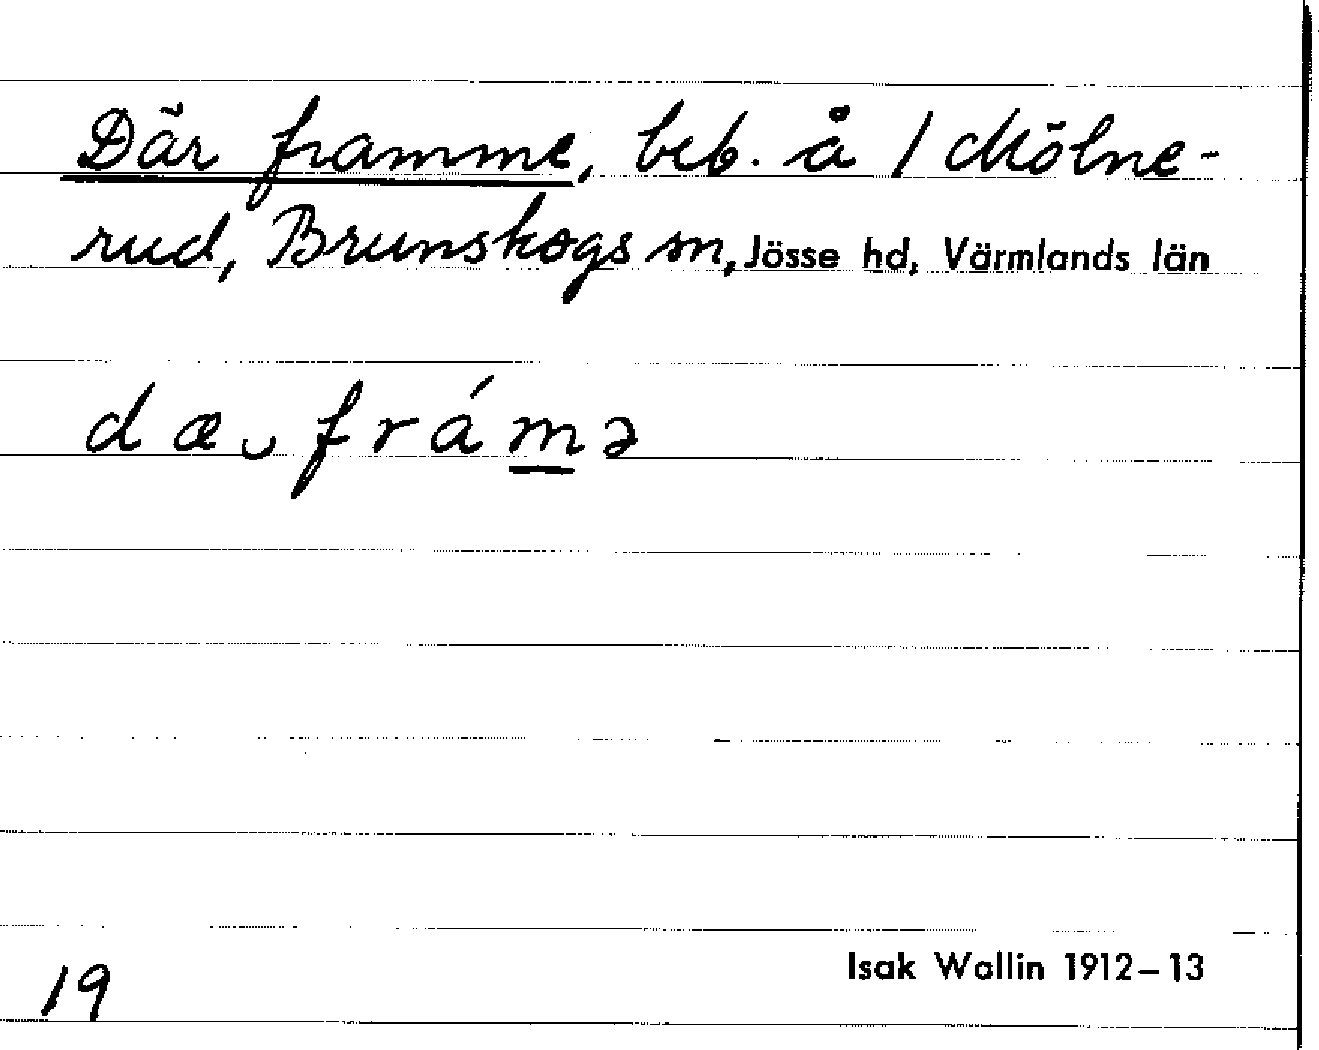 Där framme, beb. å 1 Mölne-
rud, Brunskogs sn, Jösse hd, Värmlands län
dæ‿frámə
19
Isak Wallin 1912–13